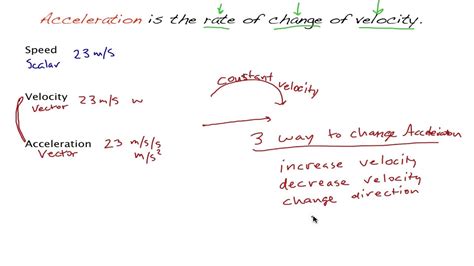 Acceleration is the rate of change of velocity.
Speed 23 m/s
Scalar
Velocity 23 m/s w
Vector
Acceleration 23 m/s/s
Vector m/s²
constant velocity
3 way to change Acceleration
increase velocity
decrease velocity
change direction